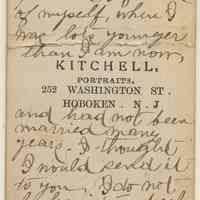 of myself, where I
was lots younger
than I am now,
KITCHELL,
PORTRAITS,
252 WASHINGTON ST.
HOBOKEN. N. J
and had not been
married many
years. I thought
I would send it
to you, I do not